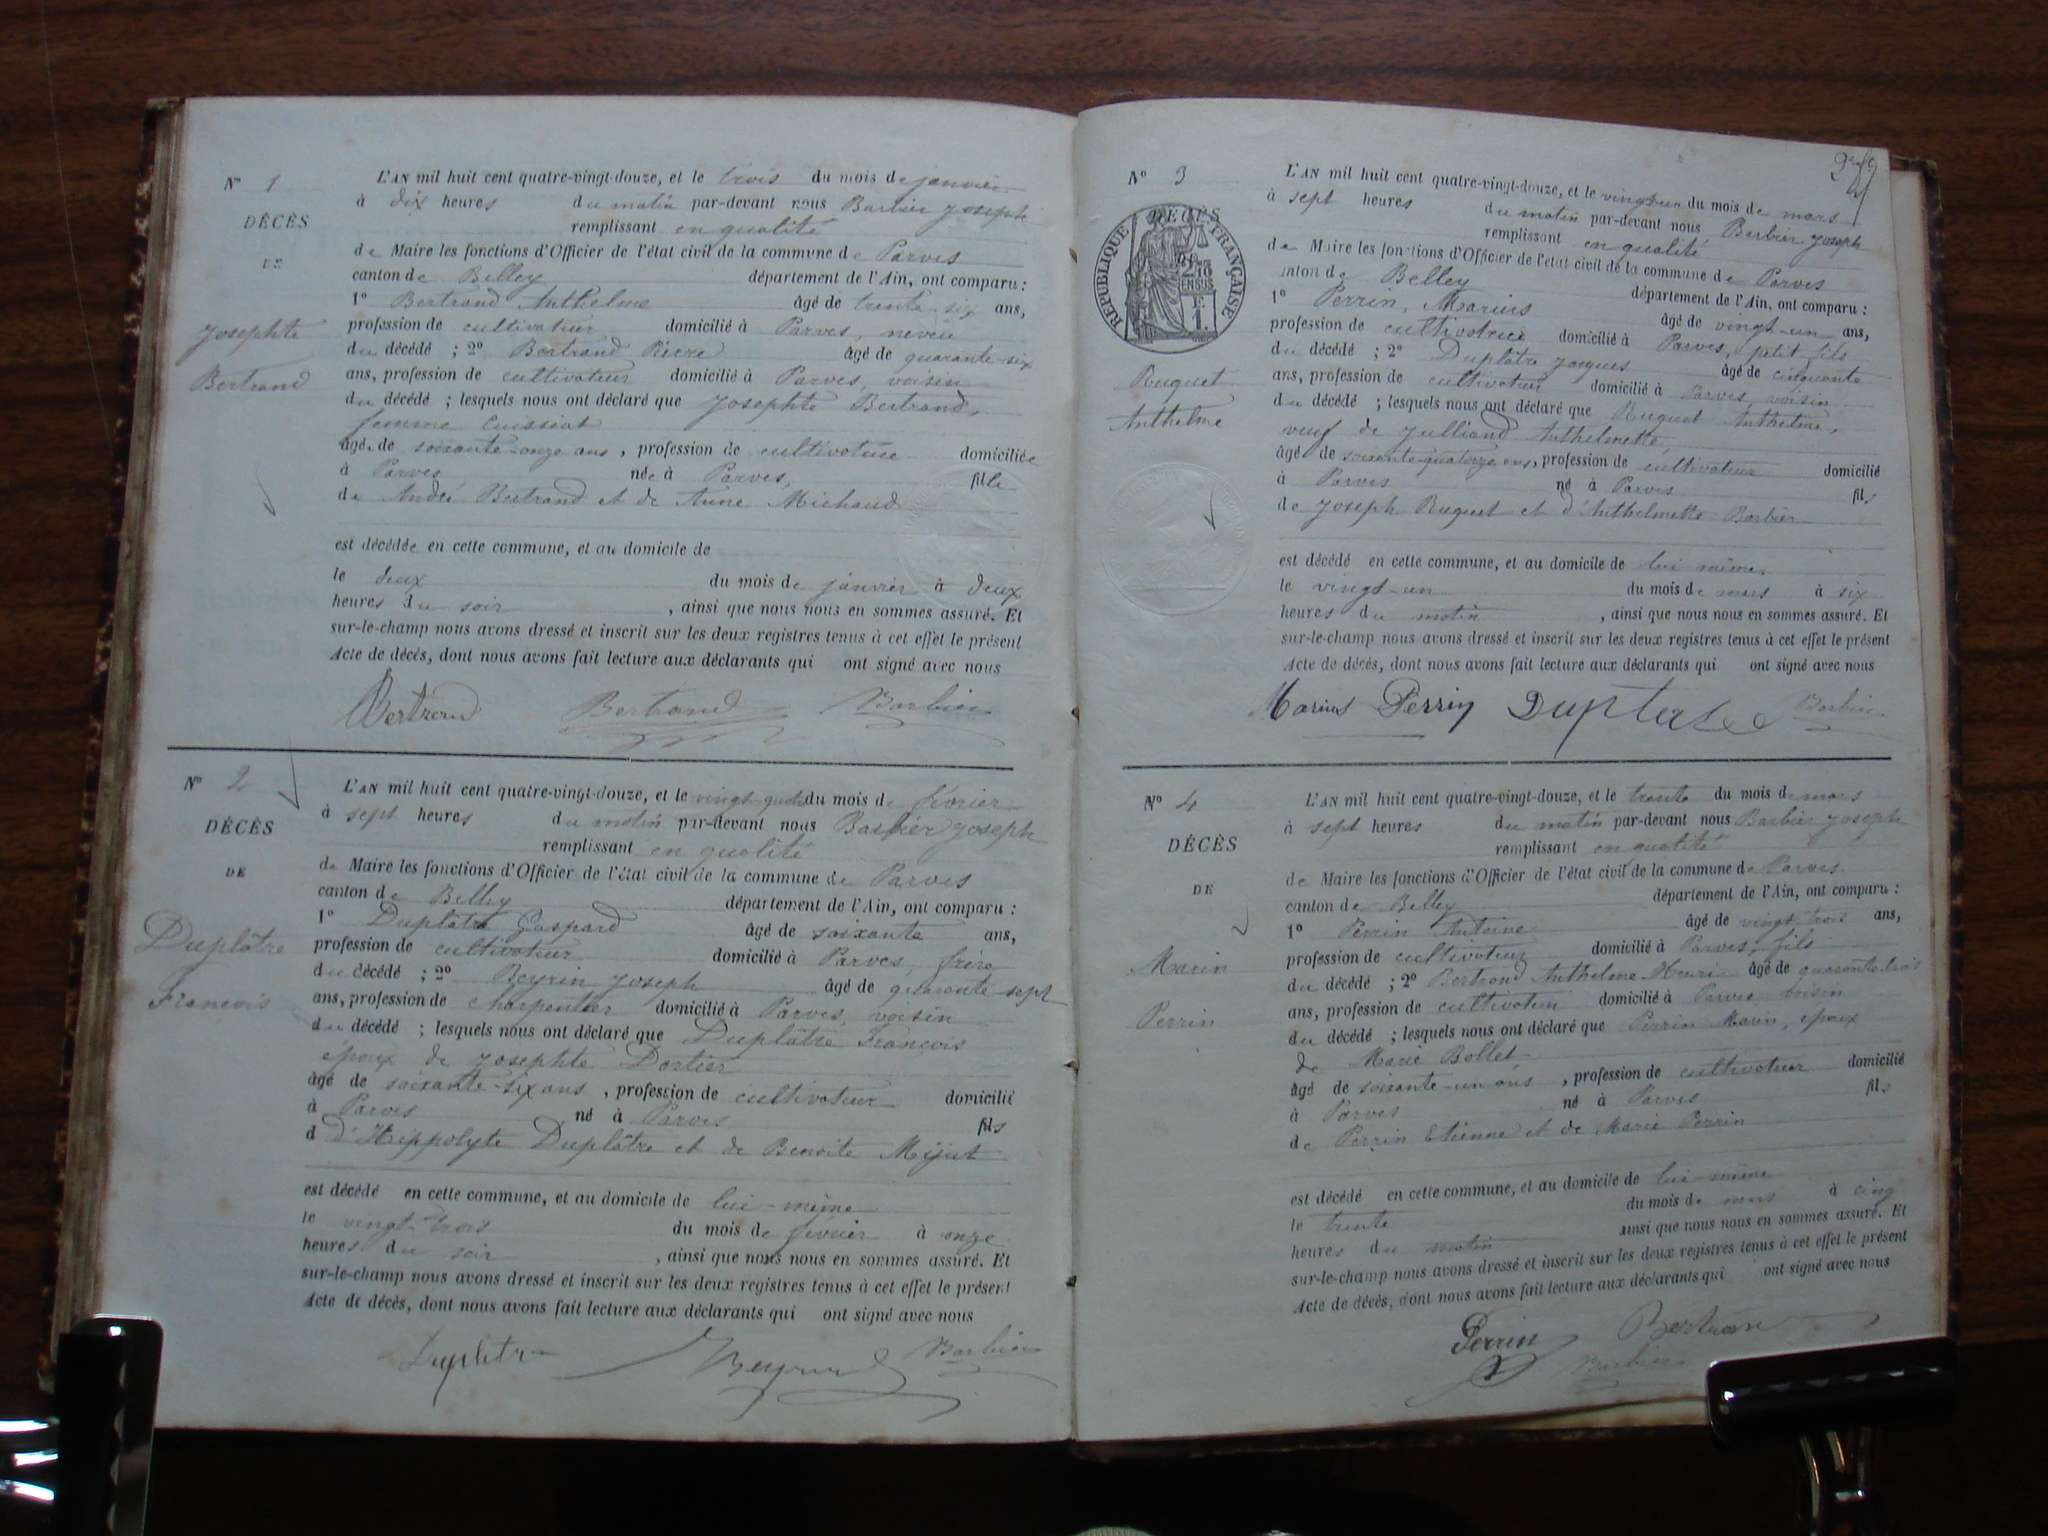 N° 1
DÉCÈS
DE
Josephte
Bertrand
L'AN mil huit cent quatre-vingt-douze, et le trois du mois de janvier
à dix heures du matin par-devant nous Barbier Joseph
remplissant en qualité
de Maire les fonctions d'Officier de l'état civil de la commune de Parves
canton de Belley département de l'Ain, ont comparu :
1° Bertrand Anthelme âgé de trente-six ans,
profession de cultivateur domicilié à Parves, neveu
du décédé ; 2° Bertrand Pierre âgé de quarante-six
ans, profession de cultivateur domicilié à Parves, voisin
du décédé ; lesquels nous ont déclaré que Josephte Bertrand,
femme Cuissiat
âgé de soixante-onze ans, profession de cultivateur domiciliée
à Parves née à Parves, fille
de André Bertrand et de Anne Michaud
est décédée en cette commune, et au domicile de
le deux du mois de janvier à deux
heures du soir, ainsi que nous nous en sommes assuré. Et
sur-le-champ nous avons dressé et inscrit sur les deux registres tenus à cet effet le présent
Acte de décès, dont nous avons fait lecture aux déclarants qui ont signé avec nous
Bertrand Bertrand Barbier
N° 2
DÉCÈS
DE
Duplâtre
François
L'AN mil huit cent quatre-vingt-douze, et le vingt-quatre du mois de février
à sept heures du matin par-devant nous Barbier Joseph
remplissant en qualité
de Maire les fonctions d'Officier de l'état civil de la commune de Parves
canton de Belley département de l'Ain, ont comparu :
1° Duplâtre Gaspard âgé de soixante ans,
profession de cultivateur domicilié à Parves, frère
du décédé ; 2° Beyrin Joseph âgé de quarante-sept
ans, profession de charpentier domicilié à Parves, voisin
du décédé ; lesquels nous ont déclaré que Duplâtre François
époux de Josephte Dortier
âgé de soixante-six ans, profession de cultivateur domicilié
à Parves né à Parves fils
d d'Hippolyte Duplâtre et de Benoite Mijut
est décédé en cette commune, et au domicile de lui-même
le vingt-trois du mois de février à onze
heures du soir, ainsi que nous nous en sommes assuré. Et
sur-le-champ nous avons dressé et inscrit sur les deux registres tenus à cet effet le présent
Acte de décès, dont nous avons fait lecture aux déclarants qui ont signé avec nous
Duplatre Beyrin Barbier
N° 3
DÉCÈS
RÉPUBLIQUE FRANÇAISE
2/10 EN SUS
F. 1.
Ruguet
Anthelme
L'AN mil huit cent quatre-vingt-douze, et le vingt-un du mois de mars
à sept heures du matin par-devant nous Barbier Joseph
remplissant en qualité
de Maire les fonctions d'Officier de l'état civil de la commune de Parves
canton de Belley département de l'Ain, ont comparu :
1° Perrin, Marius âgé de vingt-un ans,
profession de cultivatrice domicilié à Parves, petit-fils
du décédé ; 2° Duplâtre Jacques âgé de cinquante
ans, profession de cultivateur domicilié à Parves, voisin
du décédé ; lesquels nous ont déclaré que Ruguet Anthelme,
veuf de Julliand Anthelmette
âgé de soixante-quatorze ans, profession de cultivateur domicilié
à Parves né à Parves fils
de Joseph Ruguet et d'Anthelmette Barbier
est décédé en cette commune, et au domicile de lui-même.
le vingt-un du mois de mars à six
heures du matin, ainsi que nous nous en sommes assuré. Et
sur-le-champ nous avons dressé et inscrit sur les deux registres tenus à cet effet le présent
Acte de décès, dont nous avons fait lecture aux déclarants qui ont signé avec nous
Marius Perrin Barbier
N° 4
DÉCÈS
DE
Marin
Perrin
L'AN mil huit cent quatre-vingt-douze, et le trente du mois de mars
à sept heures du matin par-devant nous Barbier Joseph
remplissant en qualité
de Maire les fonctions d'Officier de l'état civil de la commune de Parves
canton de Belley département de l'Ain, ont comparu :
1° Perrin Antoine âgé de vingt-trois ans,
profession de cultivateur domicilié à Parves, fils
du décédé ; 2° Bertrand Anthelme Henri âgé de quarante-trois
ans, profession de cultivateur domicilié à Parves voisin
du décédé ; lesquels nous ont déclaré que Perrin Marin, époux
de Marie Bollet
âgé de soixante-un ans, profession de cultivateur domicilié
à Parves né à Parves fils
de Perrin Etienne et de Marie Perrin
est décédé en cette commune, et au domicile de lui-même
le trente du mois de mars à cinq
heures du matin ainsi que nous nous en sommes assuré. Et
sur-le-champ nous avons dressé et inscrit sur les deux registres tenus à cet effet le présent
Acte de décès, dont nous avons fait lecture aux déclarants qui ont signé avec nous
Perrin Bertrand
Barbier